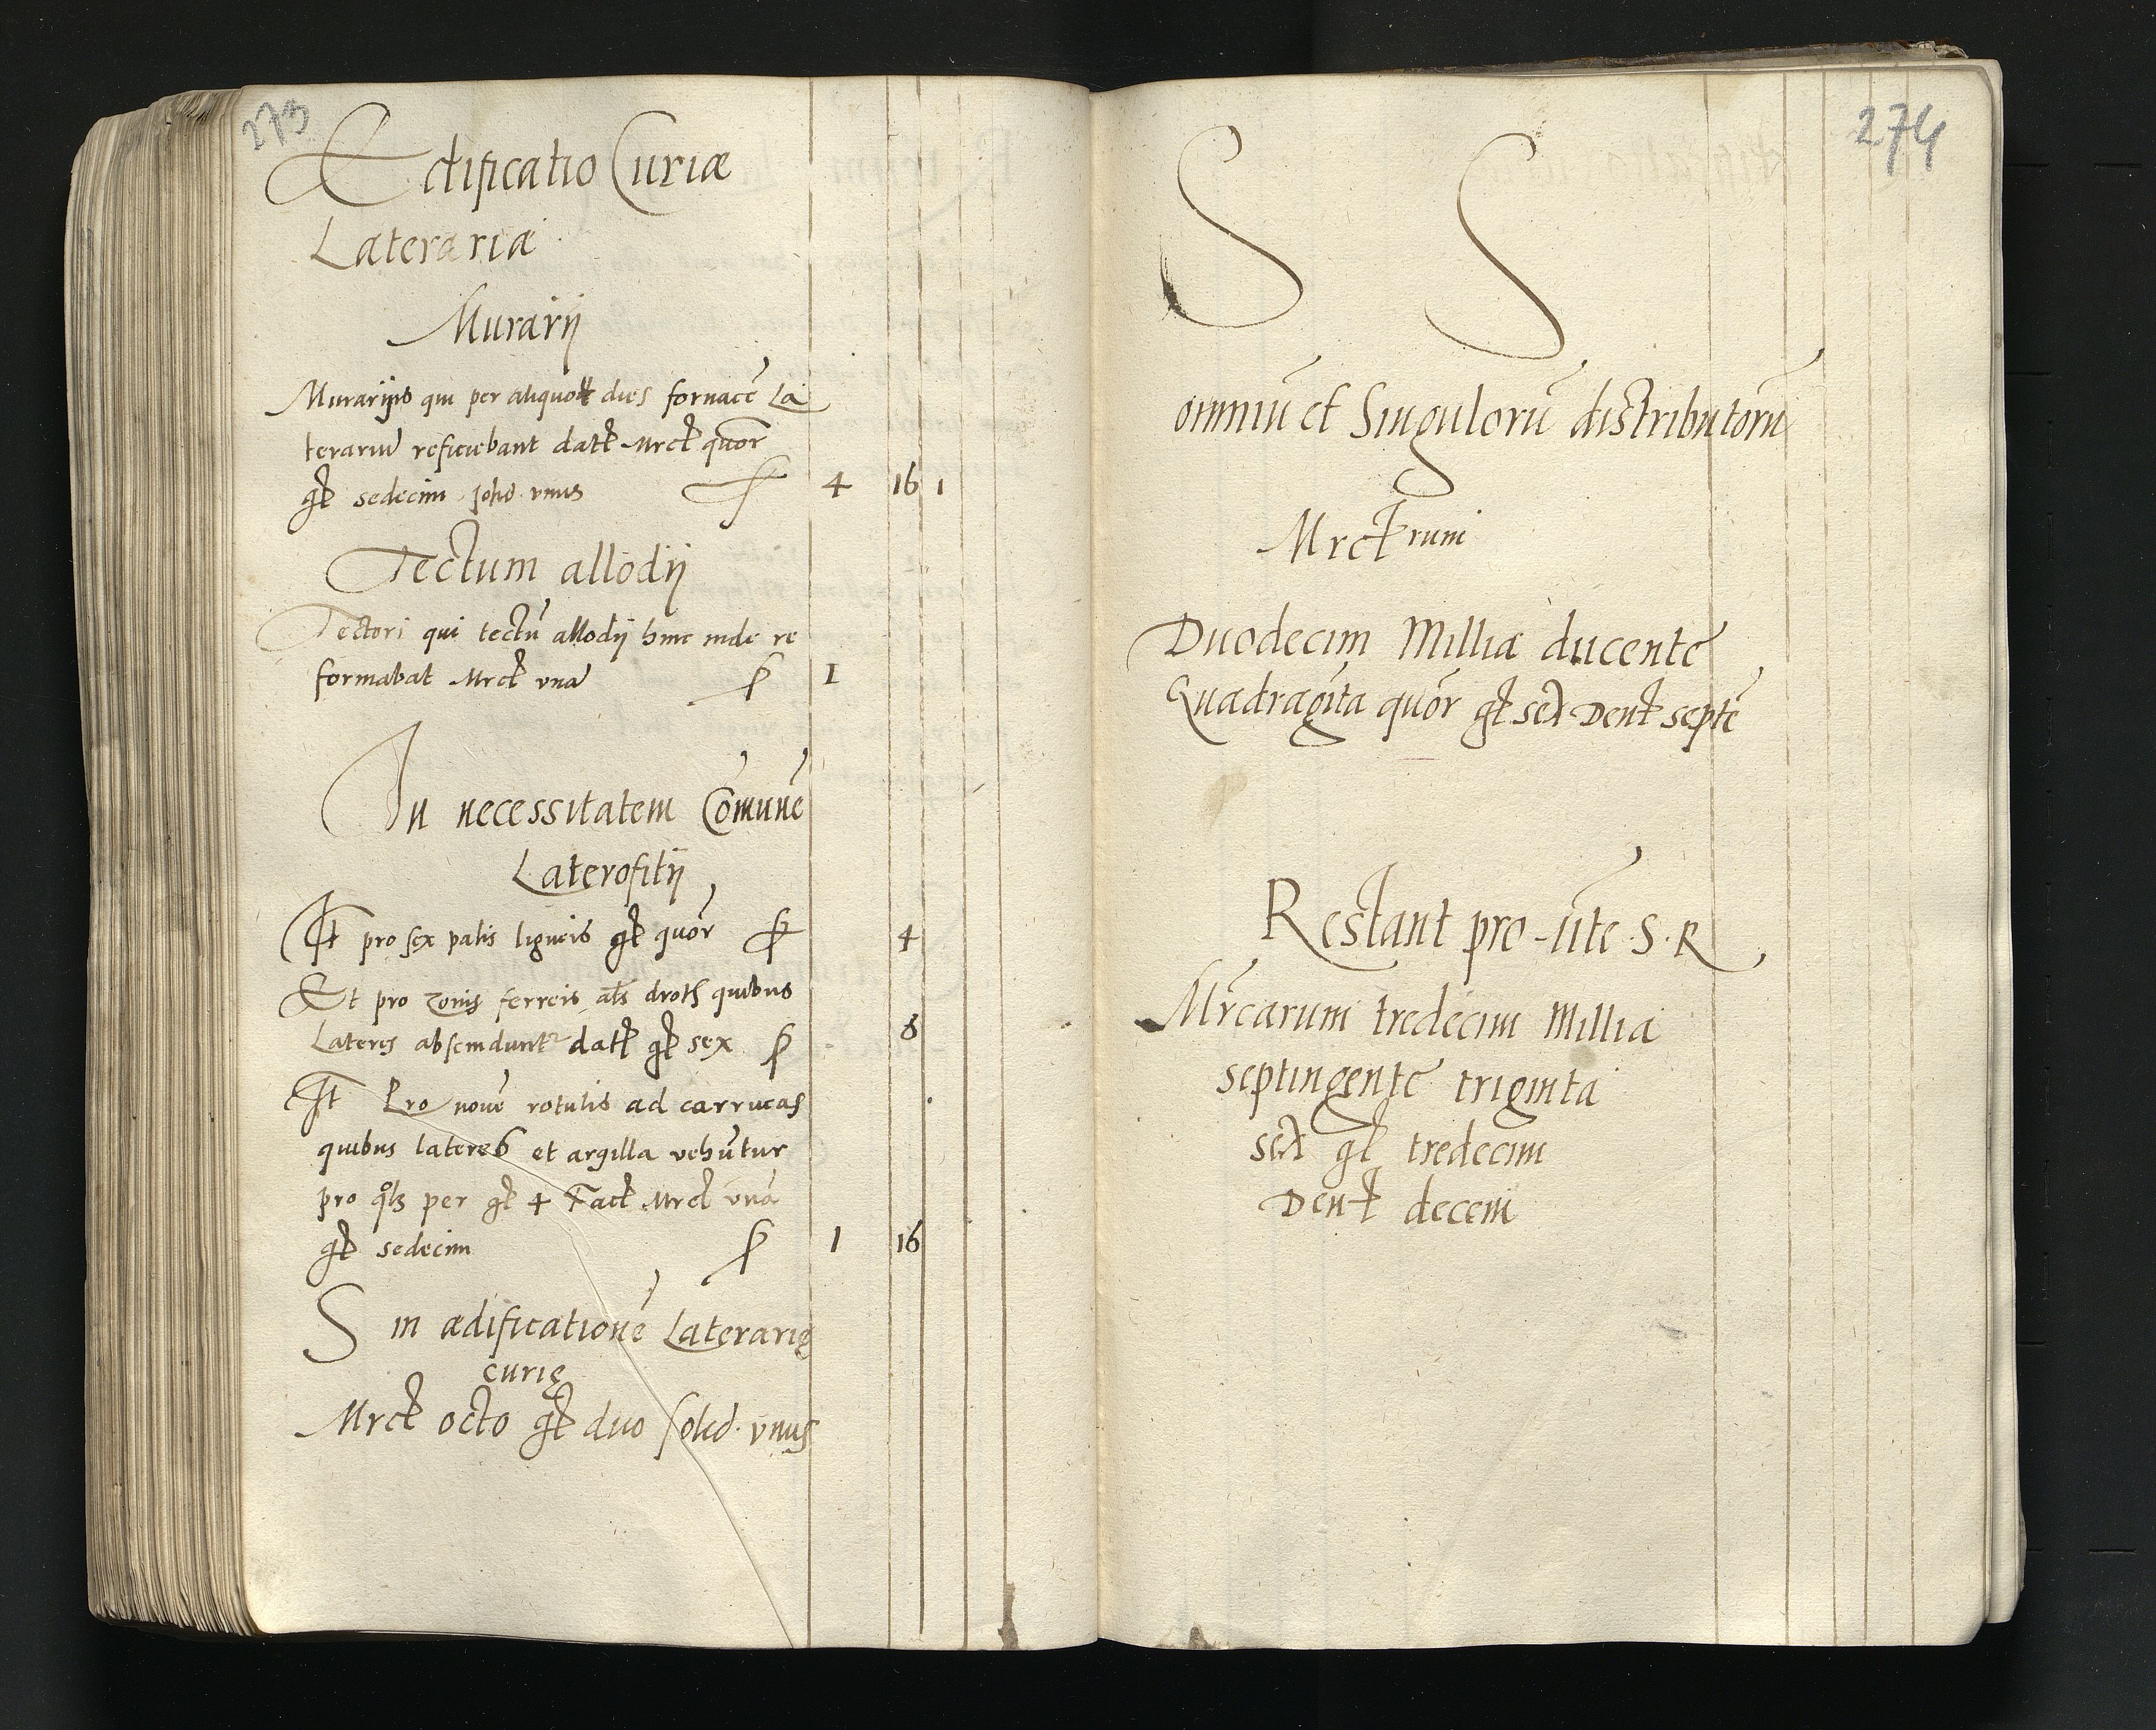 273
Edificatio Curiæ
Laterariæ
Murarij
Murarijs qui per aliquot dies fornacē La
terariū reficiebant datꝭ Mrcꝭ quor
gꝭ sedecim solid. vnus 4 16 1
Tectum allodij
Tectori qui tectū allodij hinc inde re
formabat Mrcꝭ vna 1
In necessitatem Comunē
Laterofitij
It pro sex palis ligneis gꝭ quor 4
Et pro zonis ferreis als droth quibus
Lateres abscinduntr datꝭ gꝭ sex 6
It Pro nouē rotulis ad carrucas
quibus lateres et argilla vehūtur
pro qlꝫ per gꝭ 4 Facꝭ Mrcꝭ vnā
gꝭ sedecim 1 16
S in ædificationē Laterarię
curię
Mrcꝭ octo gꝭ duo solid. vnus
274
S S
omniū et Singulorū distributorū
Mrcꝭrum
Duodecim Millia ducente
Quadragīta quōr gꝭ sex Denꝭ septē
Restant pro S. R
Mrcarum tredecim Millia
septingente triginta
sex gꝭ tredecim
Denꝭ decem